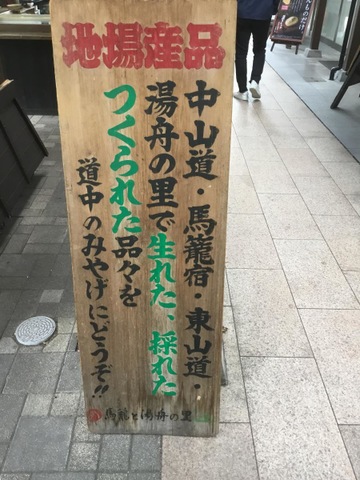 地場産品
中山道・馬籠宿・東山道・
湯舟の里で生れた、採れた
つくられた品々を
道中のみやげにどうぞ!!
馬籠と湯舟の里